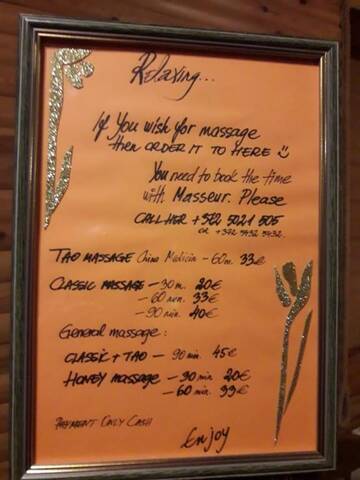 Relaxing...
If You wish for massage
then ORDER IT TO HERE
You need to book the time
with Masseur. Please
CALL HER +372 5021 505
OR +372 5432 5432.
TAO MASSAGE China Medicin - 60m. 33€
CLASSIC MASSAGE - 30 m. 20€
- 60 min. 33€
- 90 min. 40€
General massage:
CLASSIC + TAO - 90 min. 45€
HONEY MASSAGE - 30 min. 20€
- 60 min. 33€
PAYMENT ONLY CASH
Enjoy